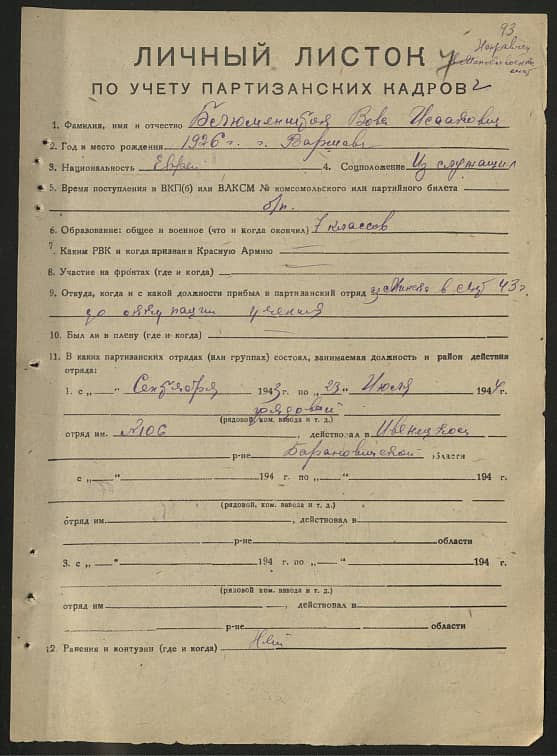 93
ЛИЧНЫЙ ЛИСТОК
ПО УЧЕТУ ПАРТИЗАНСКИХ КАДРОВ
1. Фамилия, имя и отчество Вова
2. Год и место рождения 1926 г. г. Варшава
3. Национальность Еврей 4. Соцположение Из служащих
5. Время поступления в ВКП(б) или ВЛКСМ № комсомольского или партийного билета
б/п.
6. Образование: общее и военное (что и когда окончил) 7 классов
7. Каким РВК и когда призван в Красную Армию
8. Участие на фронтах (где и когда)
9. Откуда, когда и с какой должности прибыл в партизанский отряд из Минска в 43 г.
до оккупации
10. Был ли в плену (где и когда)
11. В каких партизанских отрядах (или группах) состоял, занимаемая должность и район действия
отряда:
1. с „ “ Сентября 1943 г. по „23“ Июля 1944 г.
рядовой
(рядовой, ком. взвода и т. д.)
отряд им. №106, действовал в Ивенецком
р-не Барановичской области
с „ “ 194 г. по „ “ 194 г.
(рядовой, ком. взвода и т. д.)
отряд им. , действовал в
р-не области
3. с „ “ 194 г. по „ “ 194 г.
(рядовой, ком. взвода и т. д.)
отряд им , действовал в
р-не области
12. Ранения и контузии (где и когда) Нет